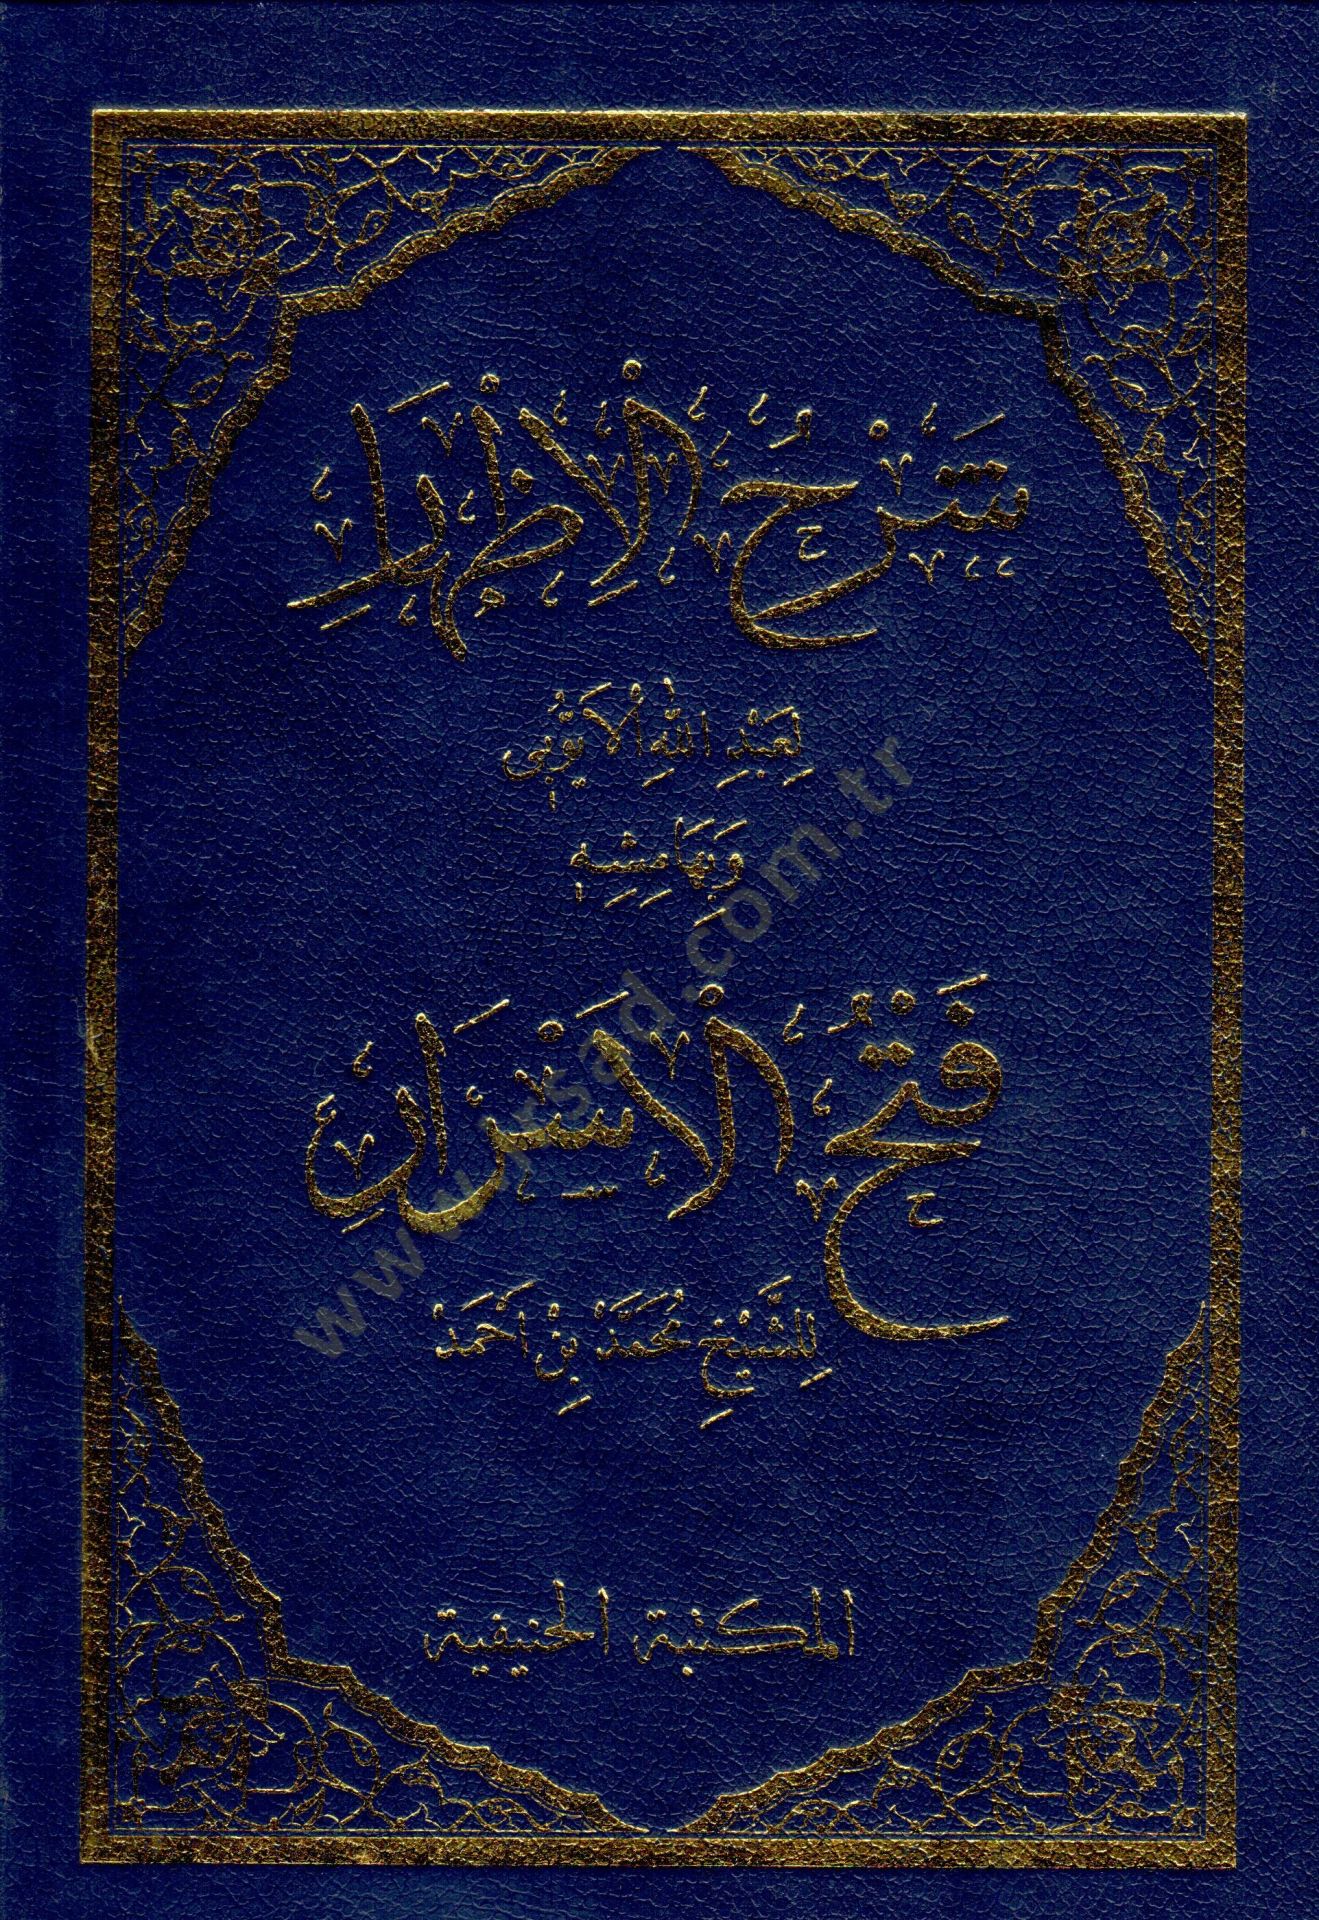 شَرْحُ الْاِظْهَارِ
لِعَبْدِ اللهِ الْاَيُّوبِي
وَبِهَامِشِهِ
فَتْحُ الْاَسْرَارِ
لِلشَّيْخِ مُحَمَّدْ بِنْ اَحْمَدْ
المكتبة الحنيفية
www.irsad.com.tr